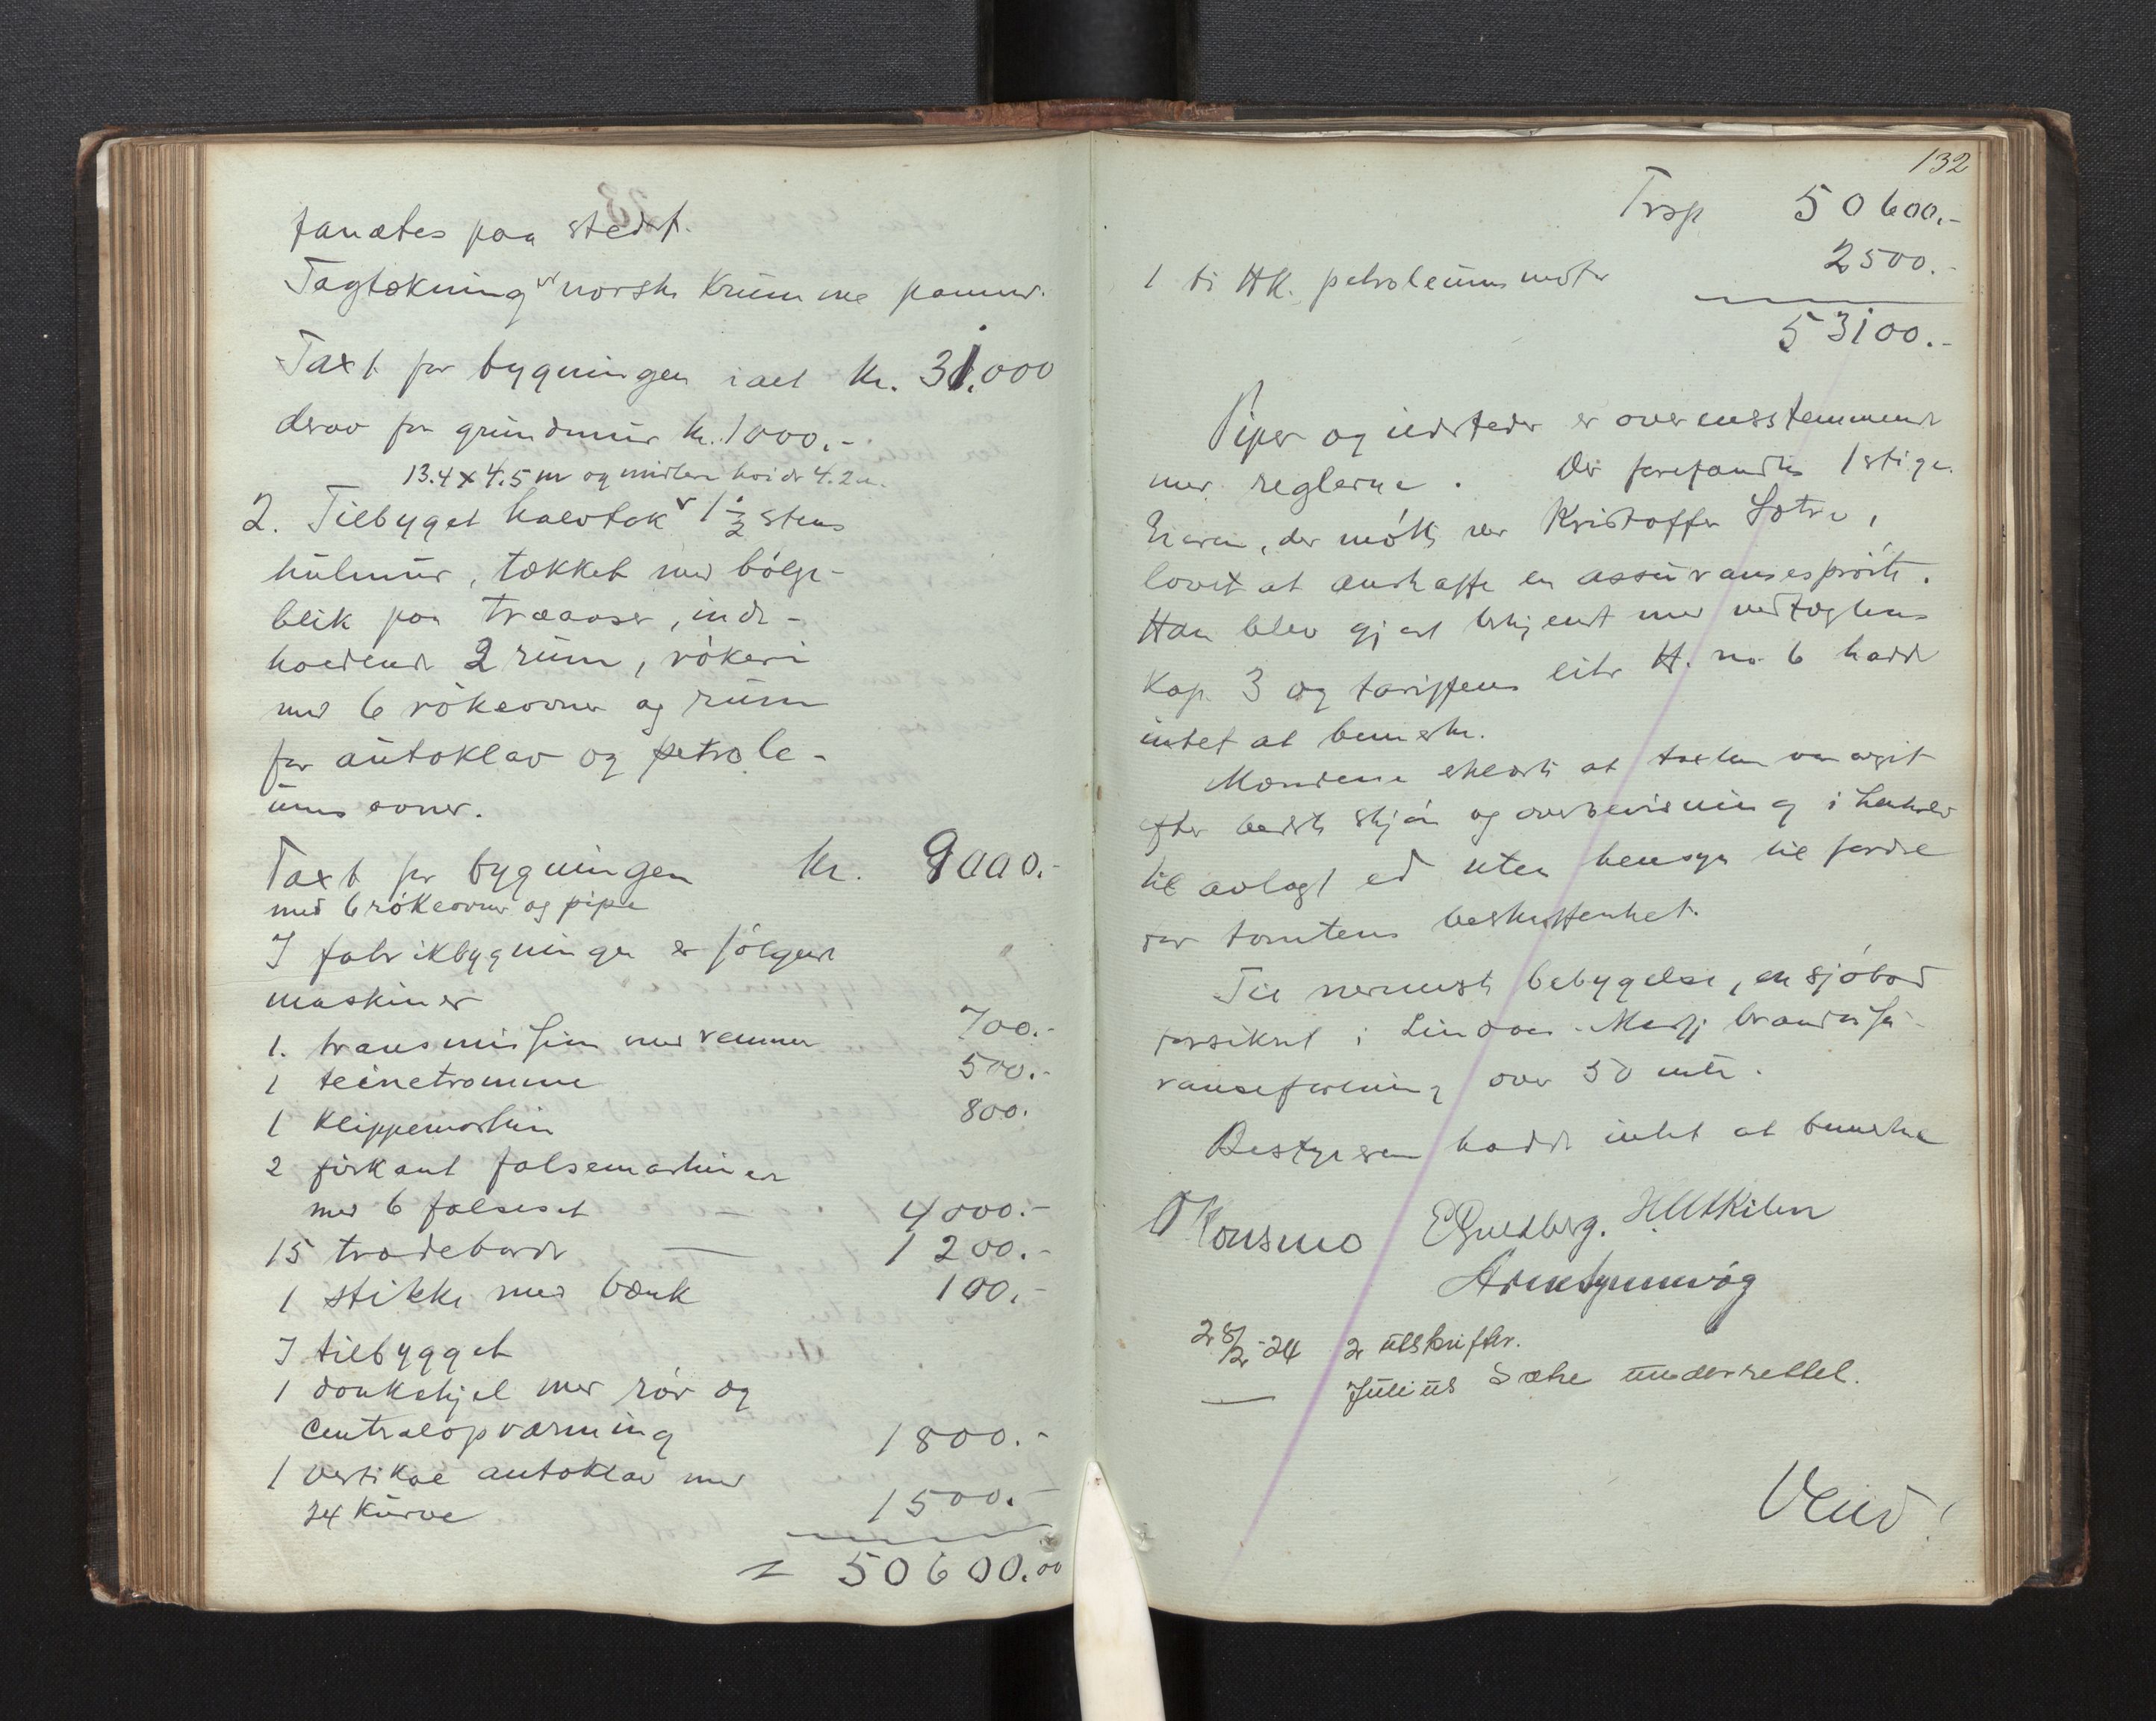 fandtes paa stedet.
Tagtækning norske krumme panner.
Taxt for bygningen ialt kr. 31.000
derav for grundmur kr. 1000.-
13.4 x 4.5 m og midlere høide 4.2 m.
2. Tilbygget halvtak 1 1/2 stens
hulmur, tækket med bølge-
blik paa træaaser, inde-
holdende 2 rum, røkeri
med 6 røkeovner og rum
for autoklav og petrole-
ums ovner.
Taxt for bygningen kr. 9000.-
med 6 røkeovner og pipe
I fabrikbygningen er følgende
maskiner
1. transmission med remmer 700.-
1 teinetromme 500.-
1 klippemaskin 800.
2 firkant falsemaskiner
med 6 falseset — 4000.-
15 trædebord — 1200.-
1 stikke med bænk 100.-
I tilbygget
1 donkekjel med rør og
centralopvarming 1800.-
1 vertikal autoklav med
24 kurve 1500.-
50600.00
132
Trsp 50600.-
1 ti HK. petroleums motor 2500.-
53100.-
Piper og ildsteder er overensstemmende
med reglerne. Der forefandtes 1 stige.
Eieren, der møtte ved Kristoffer Sætre,
lovet at anskaffe en assuransesprøite.
Han blev gjort bekjent med vedtægtens
Kap. 3 og tariffens litr H. no. 6 hadde
intet at bemerke.
Mændene erklærte at taxten var avgit
efter bedste skjøn og overbevisning i henhold
til avlagt ed uten hensyn til fordel
tomtens beskaffenhet.
Til nermeste bebygelse, en sjøbod
forsikret i Lindaas - Masfj brandassu-
ranseforening over 50 mtr.
Bestyreren hadde intet at bemerke
Konsmo E Guldberg. H Utkilen
28/2-24 2 utskrifter.
— Julius Sætre underrettet.
Vend!